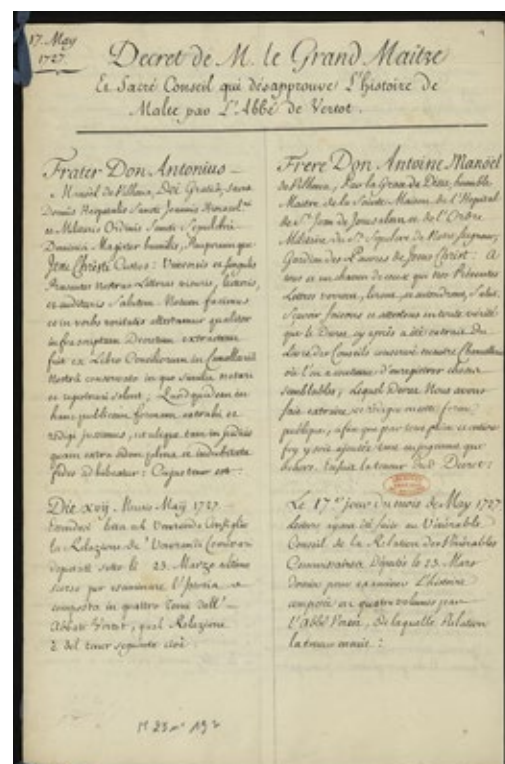 17. May
1727.
Decret de M. le Grand Maitre
Et Sacré Conseil qui désapprouve L'histoire de
Malte par L'Abbé de Vertot.
Frater Don Antonius
Manoel de Vilhena, Dei Gratia, Sacra
Domus Hospitalis Sancti Joannis
et Militaris Ordinis Sancti Sepulchri
Dominici Magister humilis, Pauperumque
Jesu Christi Custos : Universis et singulis
Praesentes nostras Litteras visuris, lecturis,
et audituris Salutem. Notum facimus
et in verbo veritatis attestamur qualiter
infrascriptum Decretum extractum
fuit ex Libro Conciliorum in Cancellaria
Nostra conservato in quo similia notari
et registrari solent ; Quod quidem in
hanc publicam formam extrahi et
redigi jussimus, ut ubique tam in judicio
quam extra eidem plena et indubitata
fides adhibeatur : Cujus tenor est :
Die xvij. Mensis Maij 1727.
letta nel Venerando Consiglio
la Relazione de' Venerandi
deputati sotto li 23. Marzo ultimo
per esaminare l'Istoria
composta in quattro Tomi dell'
Abbate Vertot, qual Relazione
è del tenor seguente cioè
Frere Don Antoine Manoël
de Vilhena, Par la Grace de Dieu, humble
Maitre de la Sainte Maison de l'Hopital
de St. Jean de Jerusalem et de l'Ordre
Militaire du St. Sepulcre de Notre Seigneur,
Gardien des Pauvres de Jesus Christ : A
tous et un chacun de ceux qui ces Présentes
Lettres verront, liront, et entendront, Salut.
Sçavoir faisons et attestons en toute vérité
que le Decret cy après a été extrait du
Livre des Conseils conservé en notre Chancellerie
où l'on a coutume d'enregistrer choses
semblables, lequel Decret Nous avons
fait extraire et rédiger en cette forme
publique, afin que par tout pleine et entiere
foy y soit ajoutée tant en jugement que
dehors. Ensuit la teneur dud. Decret :
Le 17e. jour du mois de May 1727.
lecture ayant été faite au Vénérable
Conseil de la Relation des Vénérables
Commissaires Députés le 23. Mars
dernier pour examiner L'histoire
composée en quatre volumes par
L'Abbé Vertot, de laquelle Relation
la teneur ensuit :